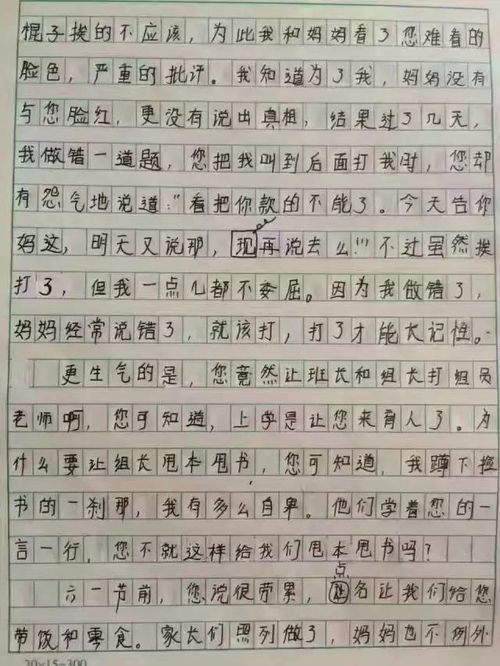 棍子挨的不应该，为此我和妈妈看了您难看的
脸色，严重的批评。我知道为了我，妈妈没有
与您脸红，更没有说出真相，结果过了几天，
我做错一道题，您把我叫到后面打我时，您却
有怨气地说道："看把你款的不能了。今天告你
妈这，明天又说那，现再说去么!"不过虽然挨
打了，但我一点儿都不委屈。因为我做错了，
妈妈经常说错了，就该打，打了才能长记性。
更生气的是，您竟然让班长和组长打组员
老师啊，您可知道，上学是让您来育人了。为
什么要让组长甩本甩书，您可知道，我蹲下捡
书的一刹那，我有多么自卑。他们学着您的一
言一行，您不就这样给我们甩本甩书吗?
六一节前，您说很劳累，点名让我们给您
带饭和零食。家长们照列做了，妈妈也不例外
20×15=300